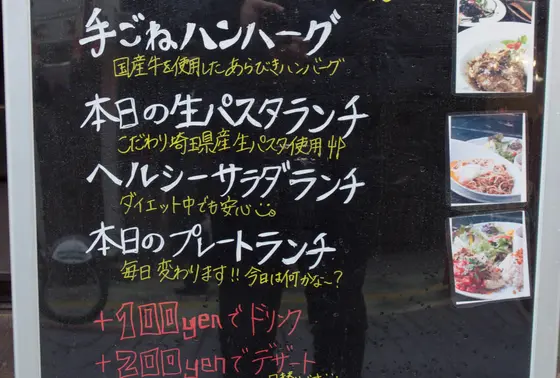 手ごねハンバーグ
国産牛を使用したあらびきハンバーグ
本日の生パスタランチ
こだわり埼玉県産生パスタ使用
ヘルシーサラダランチ
ダイエット中でも安心
本日のプレートランチ
毎日変わります!!今日は何かな〜?
+100yenでドリンク
+200yenでデザート